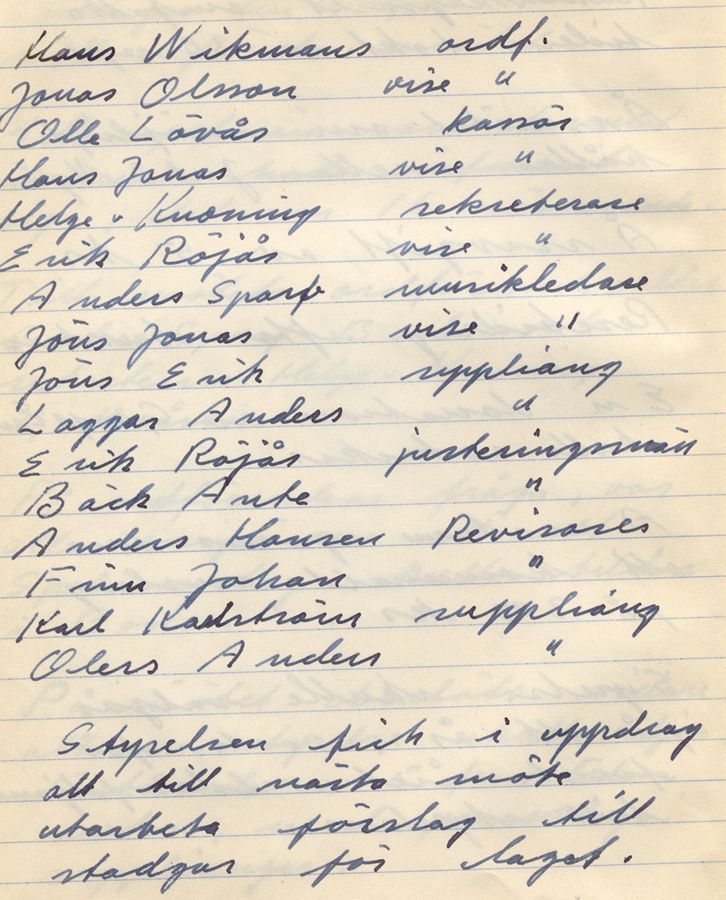 Hans Wikmans ordf.
Jonas Olsson vise "
Olle Lövås kassör
Hans Jonas vise "
Helge Knöming sekreterare
Erik Röjås vise "
Anders Sparf musikledare
Jöns Jonas vise "
Jöns Erik suppliang
Laggar Anders "
Erik Röjås justeringsmän
Bäck Ante "
Anders Hansen Revisores
Finn Johan "
Karl Karlström suppliang
Olers Anders "
Styrelsen fick i uppdrag
att till nästa möte
utarbeta förslag till
stadgar för laget.